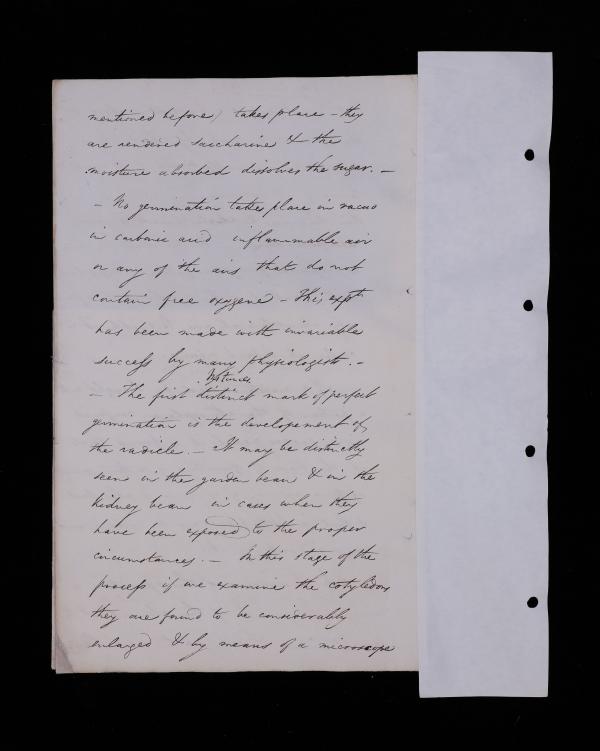 mentioned before) takes place - they
are rendered saccharine & the
moisture absorbed dissolves the sugar. -
- No germination takes place in vacuo
in carbonic acid inflammable air
or any of the airs that do not
contain free oxygene - This expt
has been made with invariable
success by many physiologists. -
- The first distinct mark of perfect
germination is the developement of
the radicle. - It may be distinctly
seen in the garden bean & in the
kidney bean in cases when they
have been exposed to the proper
circumstances. - In this stage of the
process if we examine the cotyledons
they are found to be considerably
enlarged & by means of a microscope